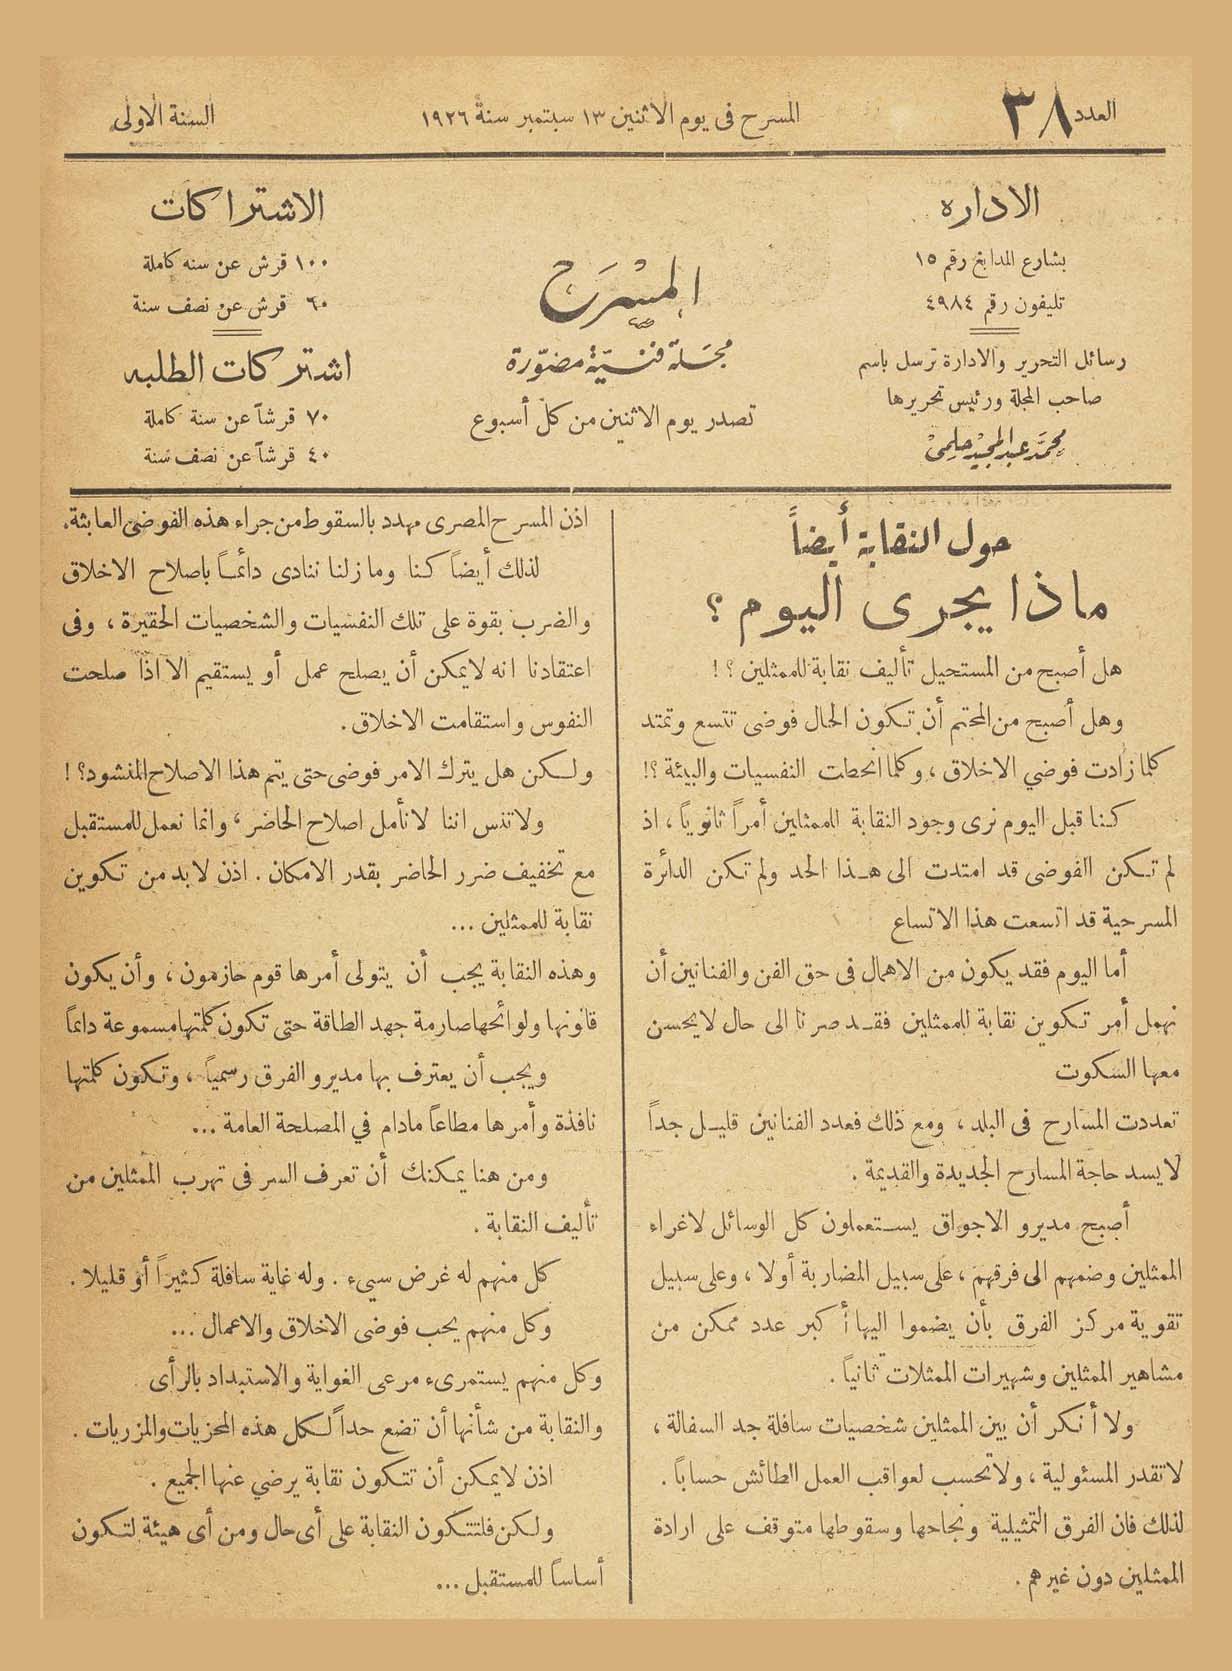 العدد ٣٨
المسرح فى يوم الاثنين ١٣ سبتمبر سنة ١٩٢٦
السنة الاولى
الاداره
بشارع المدابغ رقم ١٥
تليفون رقم ٤٩٨٤
رسائل التحرير والادارة ترسل باسم
صاحب المجلة ورئيس تحريرها
محمد عبد المجيد حلمى
المسرح
مجلة فنية مصورة
تصدر يوم الاثنين من كل أسبوع
الاشتراكات
١٠٠ قرش عن سنه كاملة
٦٠ قرش عن نصف سنة
اشتركات الطلبه
٧٠ قرشاً عن سنة كاملة
٤٠ قرشاً عن نصف سنة
حول النقابة أيضاً
ماذا يجرى اليوم ؟
هل أصبح من المستحيل تأليف نقابة للممثلين ؟ !
وهل أصبح من المحتم أن تكون الحال فوضى تتسع وتمتد
كلما زادت فوضي الاخلاق ، وكلما انحطت النفسيات والبيئة ؟!
كنا قبل اليوم نرى وجود النقابة للممثلين أمراً ثانوياً ، اذ
لم تكن الفوضى قد امتدت الى هذا الحد ولم تكن الدائرة
المسرحية قد اتسعت هذا الاتساع
أما اليوم فقد يكون من الاهمال فى حق الفن والفنانين أن
نهمل أمر تكوين نقابة للممثلين فقد صرنا الى حال لا يحسن
معها السكوت
تعددت المسارح فى البلد ، ومع ذلك فعدد الفنانين قليل جداً
لا يسد حاجة المسارح الجديدة والقديمة .
أصبح مديرو الاجواق يستعملون كل الوسائل لاغراء
الممثلين وضمهم الى فرقهم ، على سبيل المضاربة أولا ، وعلى سبيل
تقوية مركز الفرق بأن يضموا اليها أكبر عدد ممكن من
مشاهير الممثلين وشهيرات الممثلات ثانياً .
ولا أنكر أن بين الممثلين شخصيات سافلة جد السفالة ،
لا تقدر المسئولية ، ولا تحسب لعواقب العمل الطائش حساباً .
لذلك فان الفرق التمثيلية ونجاحها وسقوطها متوقف على ارادة
الممثلين دون غيرهم .
اذن المسرح المصرى مهدد بالسقوط من جراء هذه الفوضى العابثة.
لذلك أيضاً كنا وما زلنا ننادى دائماً باصلاح الاخلاق
والضرب بقوة على تلك النفسيات والشخصيات الحقيرة ، وفى
اعتقادنا انه لا يمكن أن يصلح عمل أو يستقيم الا اذا صلحت
النفوس واستقامت الاخلاق .
ولكن هل يترك الامر فوضى حتى يتم هذا الاصلاح المنشود؟ !
ولا تنس اننا لا نأمل اصلاح الحاضر ، وانما نعمل للمستقبل
مع تخفيف ضرر الحاضر بقدر الامكان . اذن لابد من تكوين
نقابة للممثلين ...
وهذه النقابة يجب أن يتولى أمرها قوم حازمون ، وأن يكون
قانونها ولوائحها صارمة جهد الطاقة حتى تكون كلمتها مسموعة دائماً
ويجب أن يعترف بها مديرو الفرق رسمياً ، وتكون كلمتها
نافذة وأمرها مطاعاً مادام في المصلحة العامة ...
ومن هنا يمكنك أن تعرف السر فى تهرب الممثلين من
تأليف النقابة .
كل منهم له غرض سيىء . وله غاية سافلة كثيراً أو قليلا .
وكل منهم يحب فوضى الاخلاق والاعمال ...
وكل منهم يستمرىء مرعى الغواية والاستبداد بالرأى
والنقابة من شأنها أن تضع حداً لكل هذه المخزيات والمزريات .
اذن لا يمكن أن تتكون نقابة يرضي عنها الجميع .
ولكن فلتتكون النقابة على أى حال ومن أى هيئة لتكون
أساساً للمستقبل ...